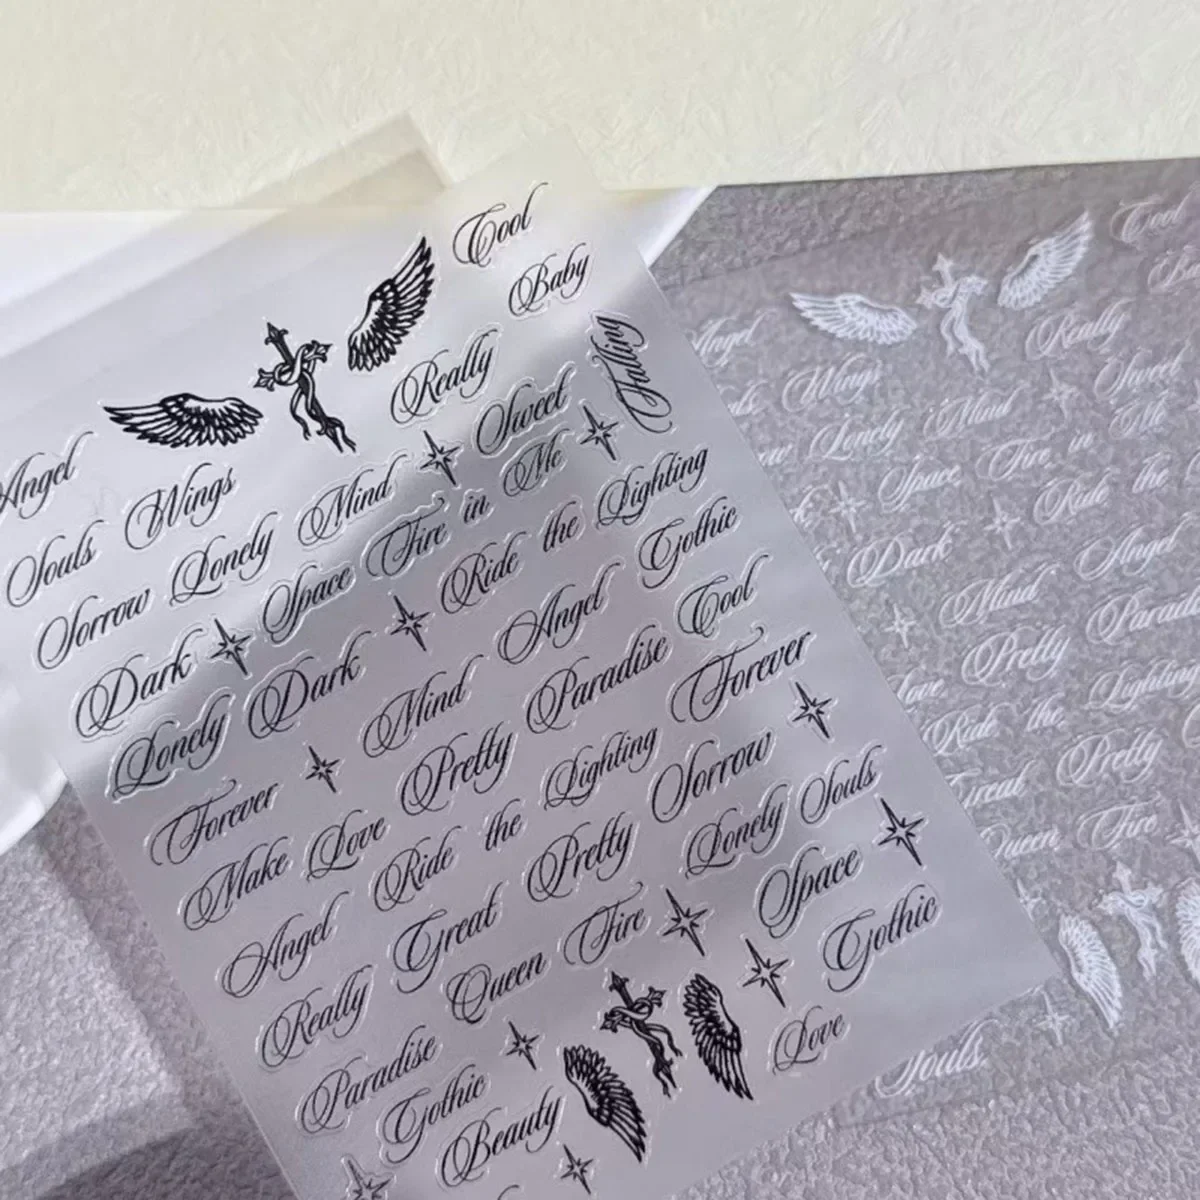 Cool
Baby
Really
Falling
Angel
Sweet
Souls Wings
Mind
Me
Sorrow Lonely
Space Fire in
Dark
Ride the Lighting
Lonely Dark
Angel Gothic
Mind
Cool
Forever
Pretty Paradise
Forever
Make Love
Ride the Lighting
Sorrow
Angel
Great Pretty
Lonely Souls
Really
Queen Fire
Space
Paradise
Gothic
Gothic
Love
Beauty
Cool
Angel
Really
Wings
Sweet
Lonely Mind
Space Fire in Me
Ride the
Dark
Mind Angel
Pretty
Love
Ride the Lighting
Great Pretty
Queen Fire
Souls